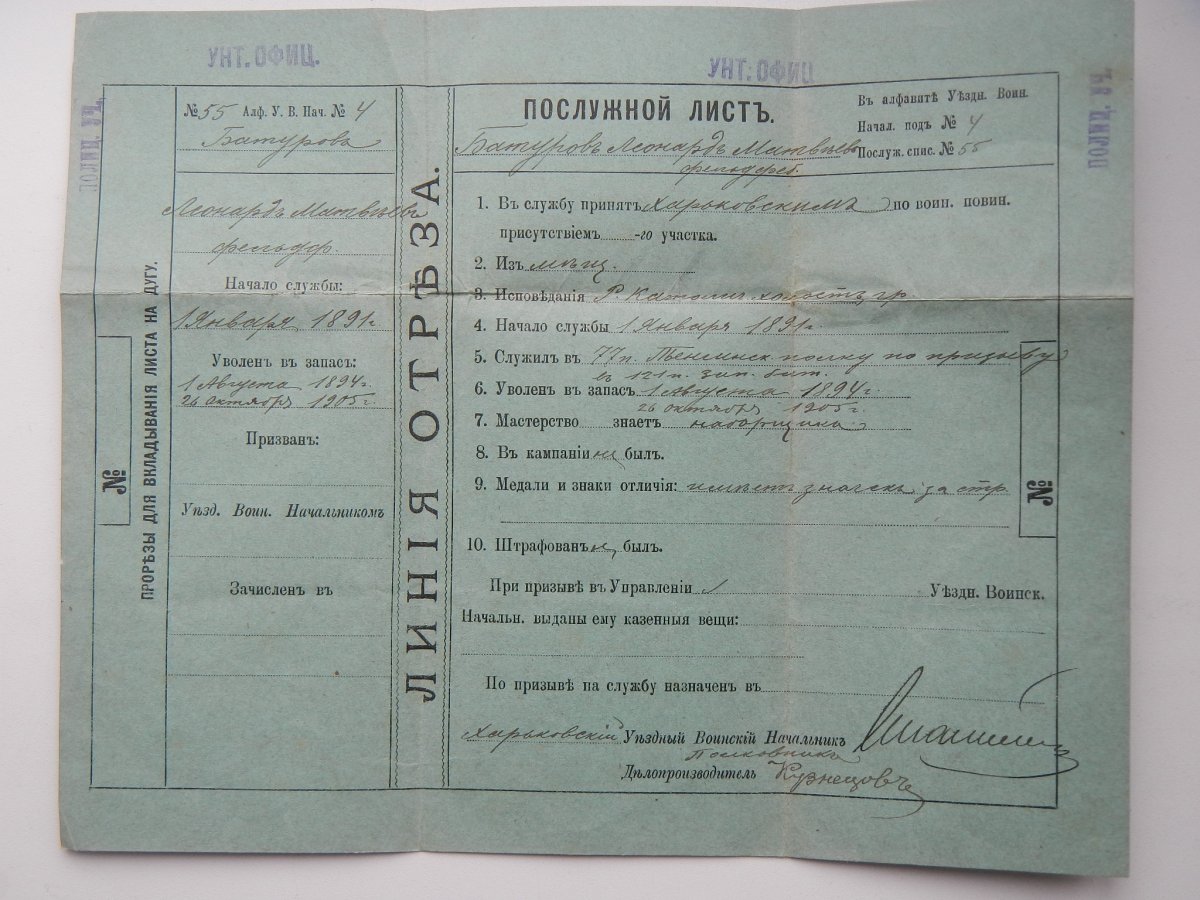 УНТ. ОФИЦ.
УНТ. ОФИЦ
ПОЛИЦ. УЧ.
№ 55 Алф. У. В. Нач. № 4
Батурова
Леонардъ Матвѣевъ
фельдф.
Начало службы:
1 Января 1891 г
Уволен въ запасъ:
1 Августа 1894 г.
26 октября 1905 г.
Призванъ:
Уѣзд. Воин. Начальникомъ
Зачисленъ въ
ПРОРѢЗЫ ДЛЯ ВКЛАДЫВАНІЯ ЛИСТА НА ДУГУ.
№
ЛИНІЯ ОТРѢЗА.
ПОСЛУЖНОЙ ЛИСТЪ.
Въ алфавитѣ Уѣздн. Воин.
Начал. подъ № 4
Послуж. спис. № 55
Батуровъ Леонардъ Матвѣевъ
фельдфеб.
1. Въ службу принятъ Харьковскимъ по воин. повин.
присутствіемъ -го участка.
2. Изъ мѣщ.
3. Исповѣданія Р. Католич. холостъ гр.
4. Начало службы 1 Января 1891 г
5. Служилъ въ 77 п. Тенгинск полку по призыву
въ 121 п. зап. бат.
6. Уволен въ запасъ 1 Августа 1894 г
26 октября 1905 г.
7. Мастерство знаетъ наборщика
8. Въ кампаніи не былъ.
9. Медали и знаки отличія: имѣетъ значекъ за стр.
10. Штрафованъ не былъ.
При призывѣ въ Управленіи Уѣздн. Воинск.
Начальн. выданы ему казенныя вещи:
По призывѣ на службу назначен въ
Харьковскій Уѣздный Воинскій Начальникъ
Полковникъ
Дѣлопроизводитель Кузнецовъ
№